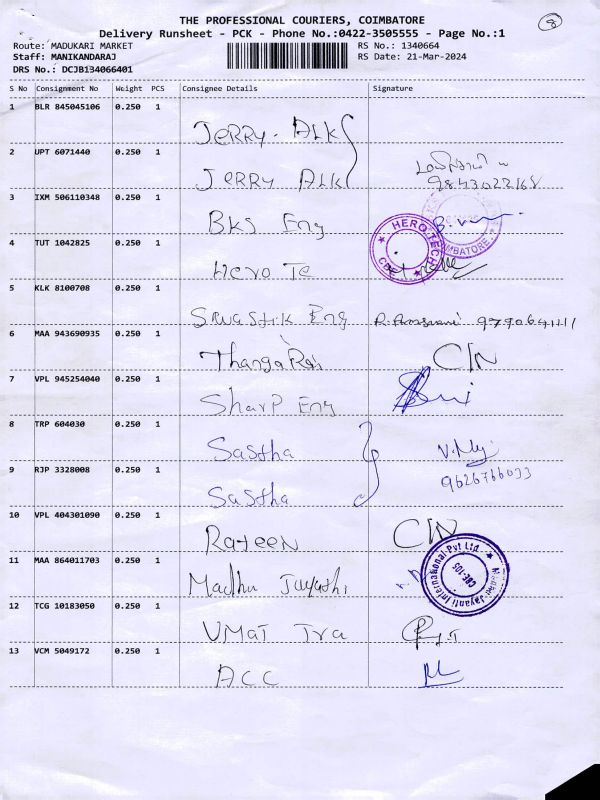 THE PROFESSIONAL COURIERS, COIMBATORE
8
Delivery Runsheet - PCK - Phone No.:0422-3505555 - Page No.:1
Route: MADUKARI MARKET RS No.: 1340664
Staff: MANIKANDARAJ RS Date: 21-Mar-2024
DRS No.: DCJB134066401
S No Consignment No Weight PCS Consignee Details Signature
1 BLR 845045106 0.250 1 JERRY. ALK
2 UPT 6071440 0.250 1 JERRY ALK
9843022168
3 IXM 506110348 0.250 1 BKS Eng
HERO TECH
CBE
4 TUT 1042825 0.250 1 Hero Te
5 KLK 8100708 0.250 1 Swastik Eng
6 MAA 943690935 0.250 1 ThangaRaj C/N
7 VPL 945254040 0.250 1 Sharp Eng
8 TRP 604030 0.250 1 Sastha
9 RJP 3328008 0.250 1 Sastha 9626766033
10 VPL 404301090 0.250 1 Rateen C/N
11 MAA 864011703 0.250 1 Madhu Jayathi
Jayanti International Pvt Ltd
CBE-105
12 TCG 10183050 0.250 1 VMaT Tra
13 VCM 5049172 0.250 1 ACC